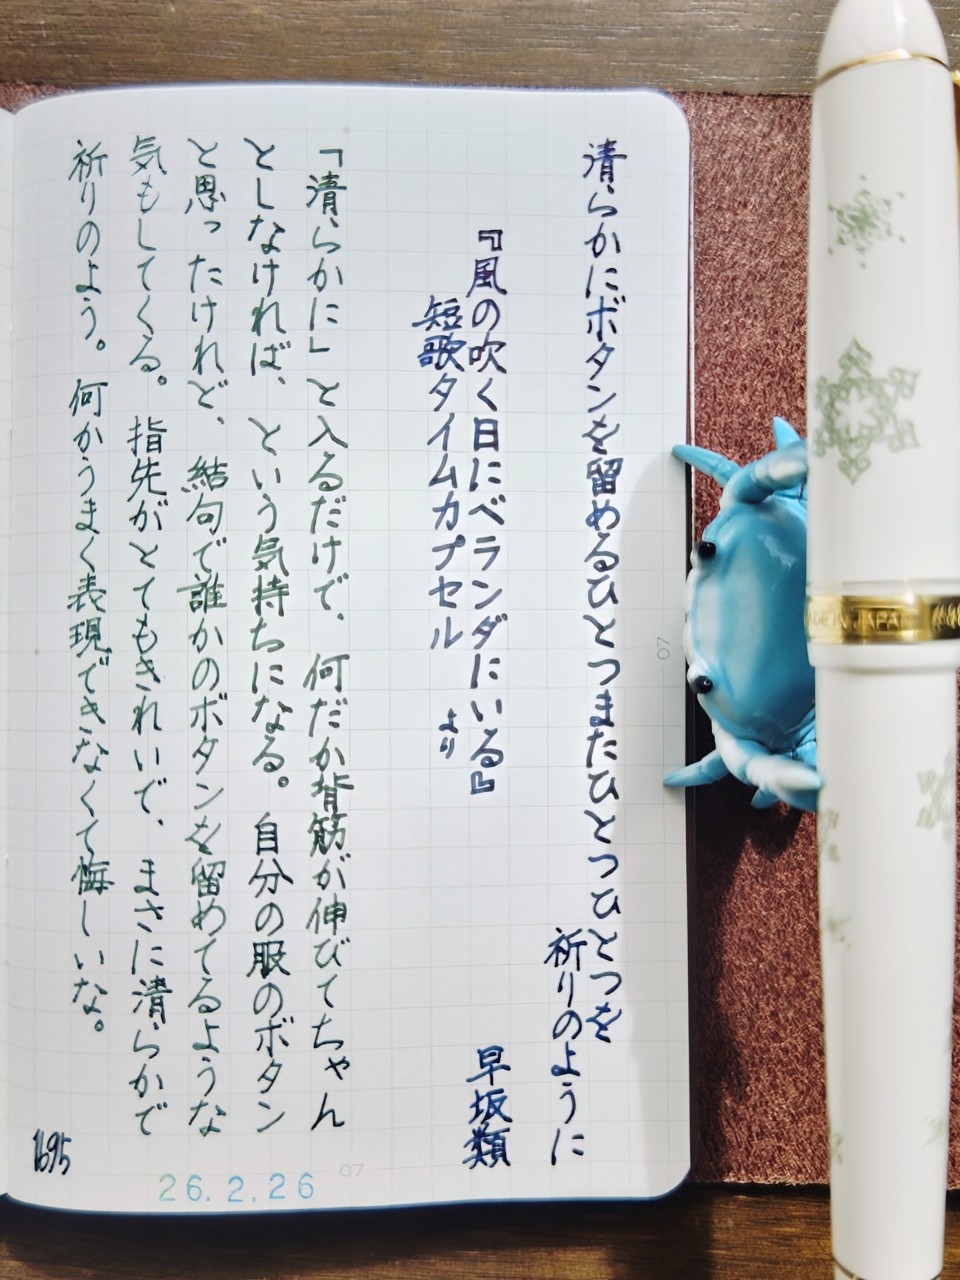 清らかにボタンを留めるひとつまたひとつひとつを
祈りのように
早坂類
『風の吹く日にベランダにいる』
短歌タイムカプセル より
「清らかに」と入るだけで、何だか背筋が伸びてちゃん
としなければ、という気持ちになる。自分の服のボタン
と思ったけれど、結句で誰かのボタンを留めてるような
気もしてくる。指先がとてもきれいで、まさに清らかで
祈りのよう。何かうまく表現できなくて悔しいな。
1695
26.2.26
07
07
MADE IN JAPAN